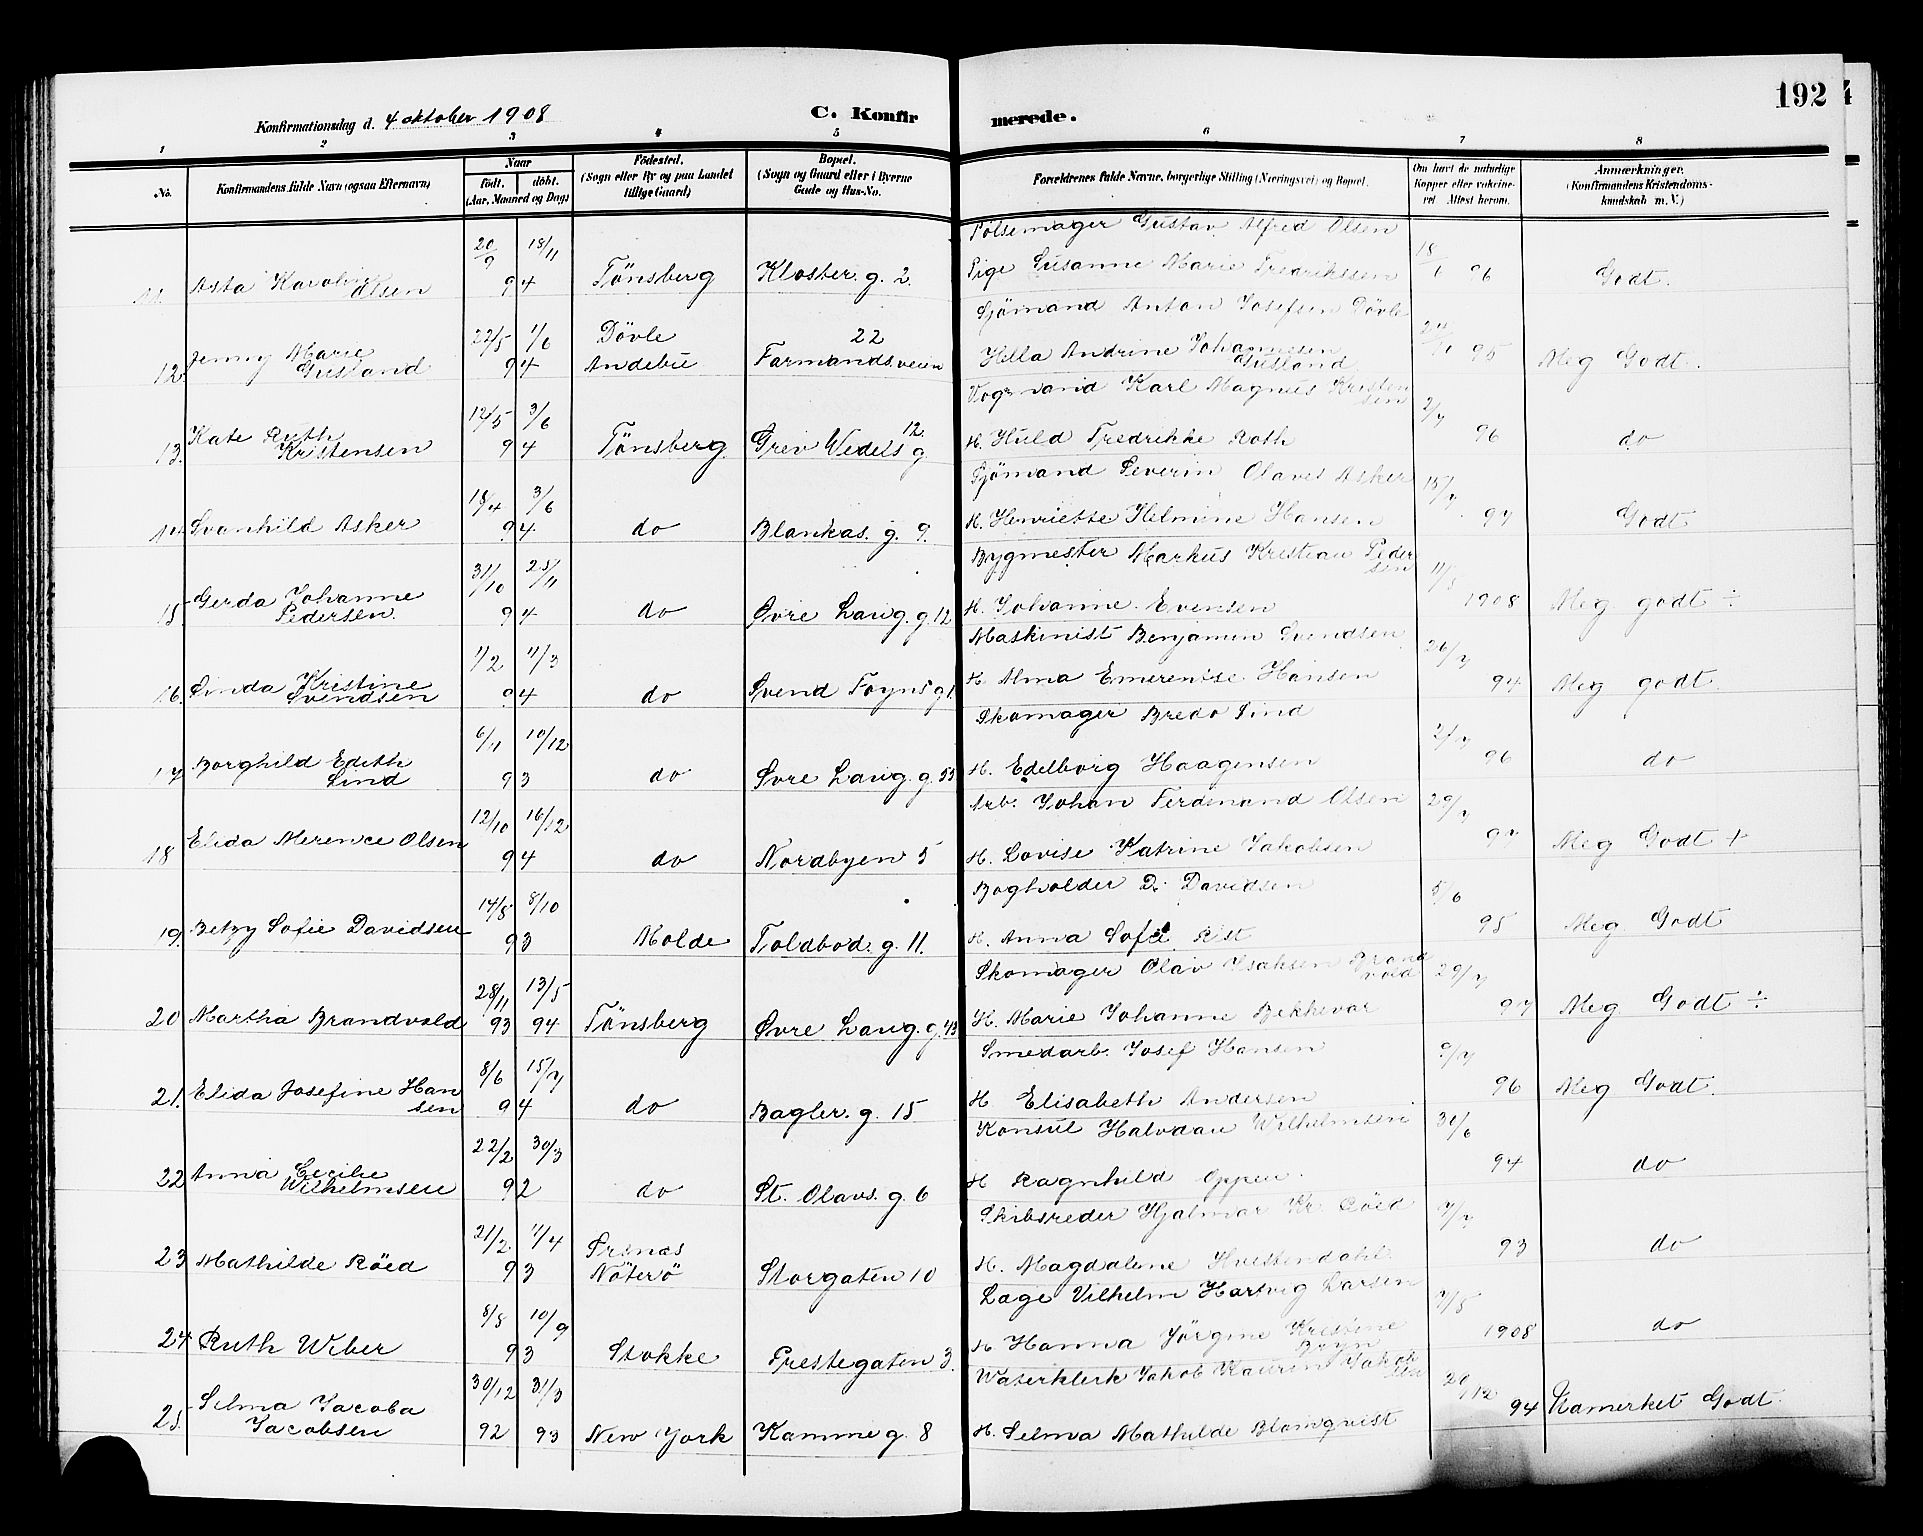 192
Konfirmationsdag d. 4 oktober 1908
C. Konfirmerede.
1 2 3 4 5 6 7 8
No. Konfirmandens fulde Navn (ogsaa Efternavn) Naar født. døbt. (Aar, Maaned og Dag) Födested. (Sogn eller By og paa Landet tillige Gaard) Bopæl. (Sogn og Gaard eller i Byerne Gade og Hus-No. Forældrenes fulde Navne, borgerlige Stilling (Næringsvei) og Bopæl. Om havt de naturlige Kopper eller vakcineret Attest herom. Anmærkninger. (Konfirmandens Kristendomskundskab m. V.)
Pölsemager Gustav Alfred Olsen
11. Asta Karoline Olsen 20/9 18/11 94 Tönsberg Kloster. g. 2. Pige Susanne Marie Fredrikssen 18/1 96 Godt.
Sjömand Anton Josefsen Dövle
12. Jenny Marie Gusland 22/5 1/6 94 Dövle Andebu 22 Farmandsveien Hella Andrine Johannesen Gusland 95 Meg Godt.
Vognmand Karl Magnus Kristensen
13. Kate Ruth Kristensen 12/5 3/6 94 Tönsberg Grev Wedels g 12. H. Huld Fredrikke Roth 2/7 96 do
Sjömand Severin Olaves Asker
14 Svanhild Asker 18/4 3/6 94 do Blankas. g. 9. H. Henriette Helmine Hansen 15/7 97 Godt
Bygmester Markus Kristian Pedersen
15. Gerda Johanne Pedersen. 31/10 25/11 94 do Øvre Lang. g. 12 H. Johanne Evensen 11/5 1908 Meg godt ÷
Maskinist Benjamin Svendsen
16. Linda Kristine Svendsen 1/2 11/3 94 do Svend Foyns g 1. H. Alma Emerentse Hansen 26/7 94 Meg godt.
Skomager Bredo Lind
17 Borghild Edith Lind 6/11 10/12 93 do Øvre Lang. g. 55 H. Edelborg Haagensen 2/7 96 do
Arb. Johan Ferdinand Olsen
18 Elida Merence Olsen 12/10 16/12 94 do Nordbyen 5 H. Lovise Katrine Jakobsen 29/7 97 Meg Godt +
Bogholder D. Davidsen
19. Betzy Sofie Davidsen 14/8 8/10 93 Molde Toldbod. g. 11. H. Anna Sofie Rist 5/6 95 Meg Godt
Skomager Olav Isaksen Brandvold
20 Martha Brandvold 28/11 93 13/5 94 Tönsberg Øvre Lang. g. 43 H. Marie Johanne Bekkevar 29/7 97 Meg Godt ÷
Smedarb. Josef Hansen
21. Elida Josefine Hansen 8/6 15/7 94 do Bagler. g. 15 H Elisabeth Andersen 9/7 96 Meg Godt.
Konsul Halvdan Wilhelmsen
22 Anna Cecilie Wilhelmsen 22/2 30/3 92 do St. Olavs. g. 6 H Ragnhild Oppen 94 do
Skibsreder Hjalmar Kr. Röed
23 Mathilde Röed 21/2 4/4 93 Nöterö Storgaten 10 H. Magdalene Hvistendahl 7/7 93 do
Læge Vilhelm Hartvig Larsen
24 Ruth Wiber 8/8 10/9 93 Stokke Prestegaten 3. H Hanna Jörgine Kristine 3/5 1908 do
Waterklerk Jakob Kaurin Jakobsen
25 Selma Jacoba Jacobsen 30/12 92 31/3 93 New York Kamme g. 8 H. Selma Mathilde Blomqvist 20/12 94 Udmerket Godt.